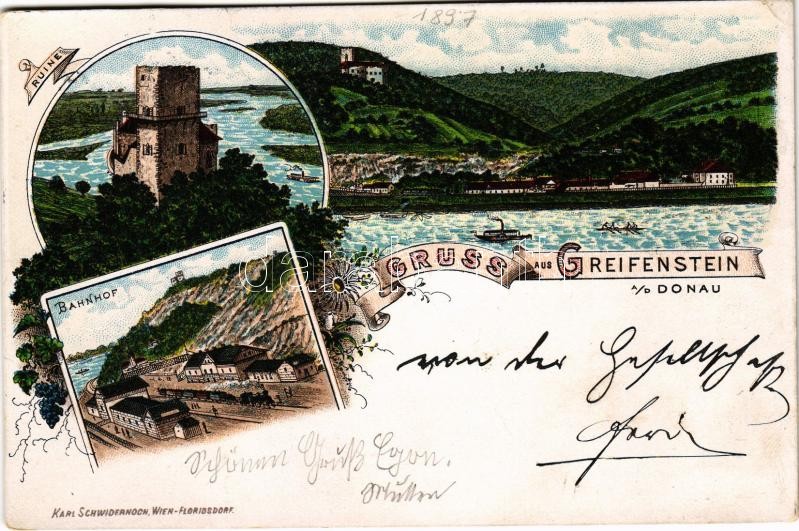 1897
RUINE
GRUSS AUS GREIFENSTEIN
A/D DONAU
BAHNHOF
von der Gesellschaft
Schönen Gruß Egon.
KARL SCHWIDERNOCH, WIEN-FLORIDSDORF.